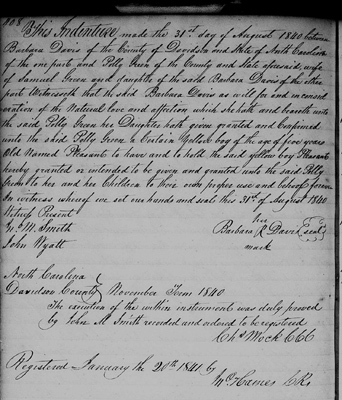 208
This Indenture made the 31st day of August 1840 between
Barbara Davis of the County of Davidson and State of North Carolina
of the one part and Polly Green of the County and State aforesaid, wife
of Samuel Green and daughter of the said Barbara Davis of the other
part Witnesseth that the said Barbara Davis as will for and in consid
eration of the Natural love and affection which she hath and beareth unto
the said Polly Green her Daughter hath given granted and confirmed
unto the said Polly Green a Certain Yellow boy of the age of five years
Old Named Pleasant to have and to hold the said yellow boy Pleasant
hereby granted or intended to be given and granted unto the said Polly
Green to her and her Children to their own proper use and behoof forever
In witness whereof we set our hands and seal this 31st of August 1840
Witness Present
J. M. Smith
John Wyatt
her
Barbara R Davis Seal
mark
North Carolina
Davidson County November Term 1840
The execution of the within instrument was duly proved
by John M Smith recorded and ordered to be registered
Chs Mock CCC
Registered January the 20th 1841 by